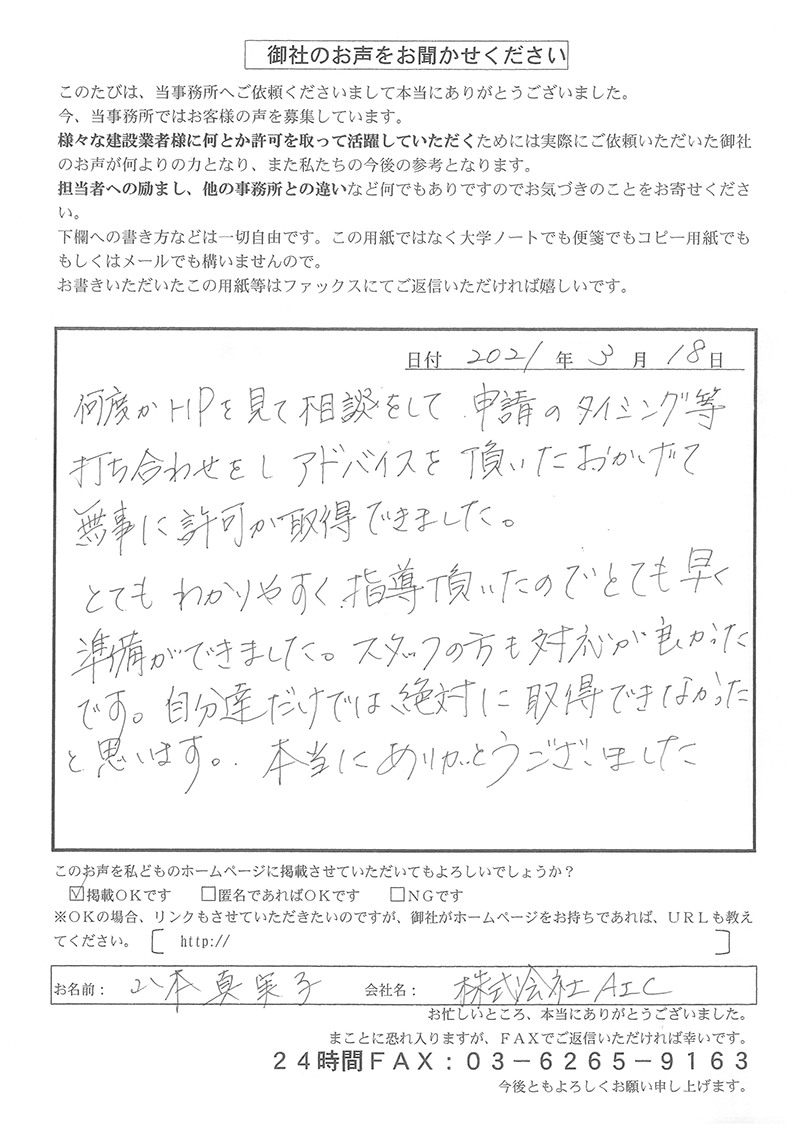 御社のお声をお聞かせください
このたびは、当事務所へご依頼くださいまして本当にありがとうございました。
今、当事務所ではお客様の声を募集しています。
様々な建設業者様に何とか許可を取って活躍していただくためには実際にご依頼いただいた御社
のお声が何よりの力となり、また私たちの今後の参考となります。
担当者への励まし、他の事務所との違いなど何でもありですのでお気づきのことをお寄せくださ
い。
下欄への書き方などは一切自由です。この用紙ではなく大学ノートでも便箋でもコピー用紙でも
もしくはメールでも構いませんので。
お書きいただいたこの用紙等はファックスにてご返信いただければ嬉しいです。
日付 2021 年 3 月 18 日
何度かHPを見て相談をして 申請のタイミング等
打ち合わせをし アドバイスを 頂いたおかげで
無事に許可が取得できました。
とてもわかりやすく指導頂いたのでとても早く
準備ができました。スタッフの方も対応が良かった
です。自分達だけでは絶対に取得できなかった
と思います。本当にありがとうございました
このお声を私どものホームページに掲載させていただいてもよろしいでしょうか？
☑掲載ＯＫです □匿名であればＯＫです □ＮＧです
※ＯＫの場合、リンクもさせていただきたいのですが、御社がホームページをお持ちであれば、ＵＲＬも教え
てください。〔 http:// 〕
お名前： 八本真実子 会社名： 株式会社AIC
お忙しいところ、本当にありがとうございました。
まことに恐れ入りますが、ＦＡＸでご返信いただければ幸いです。
２４時間ＦＡＸ：０３－６２６５－９１６３
今後ともよろしくお願い申し上げます。